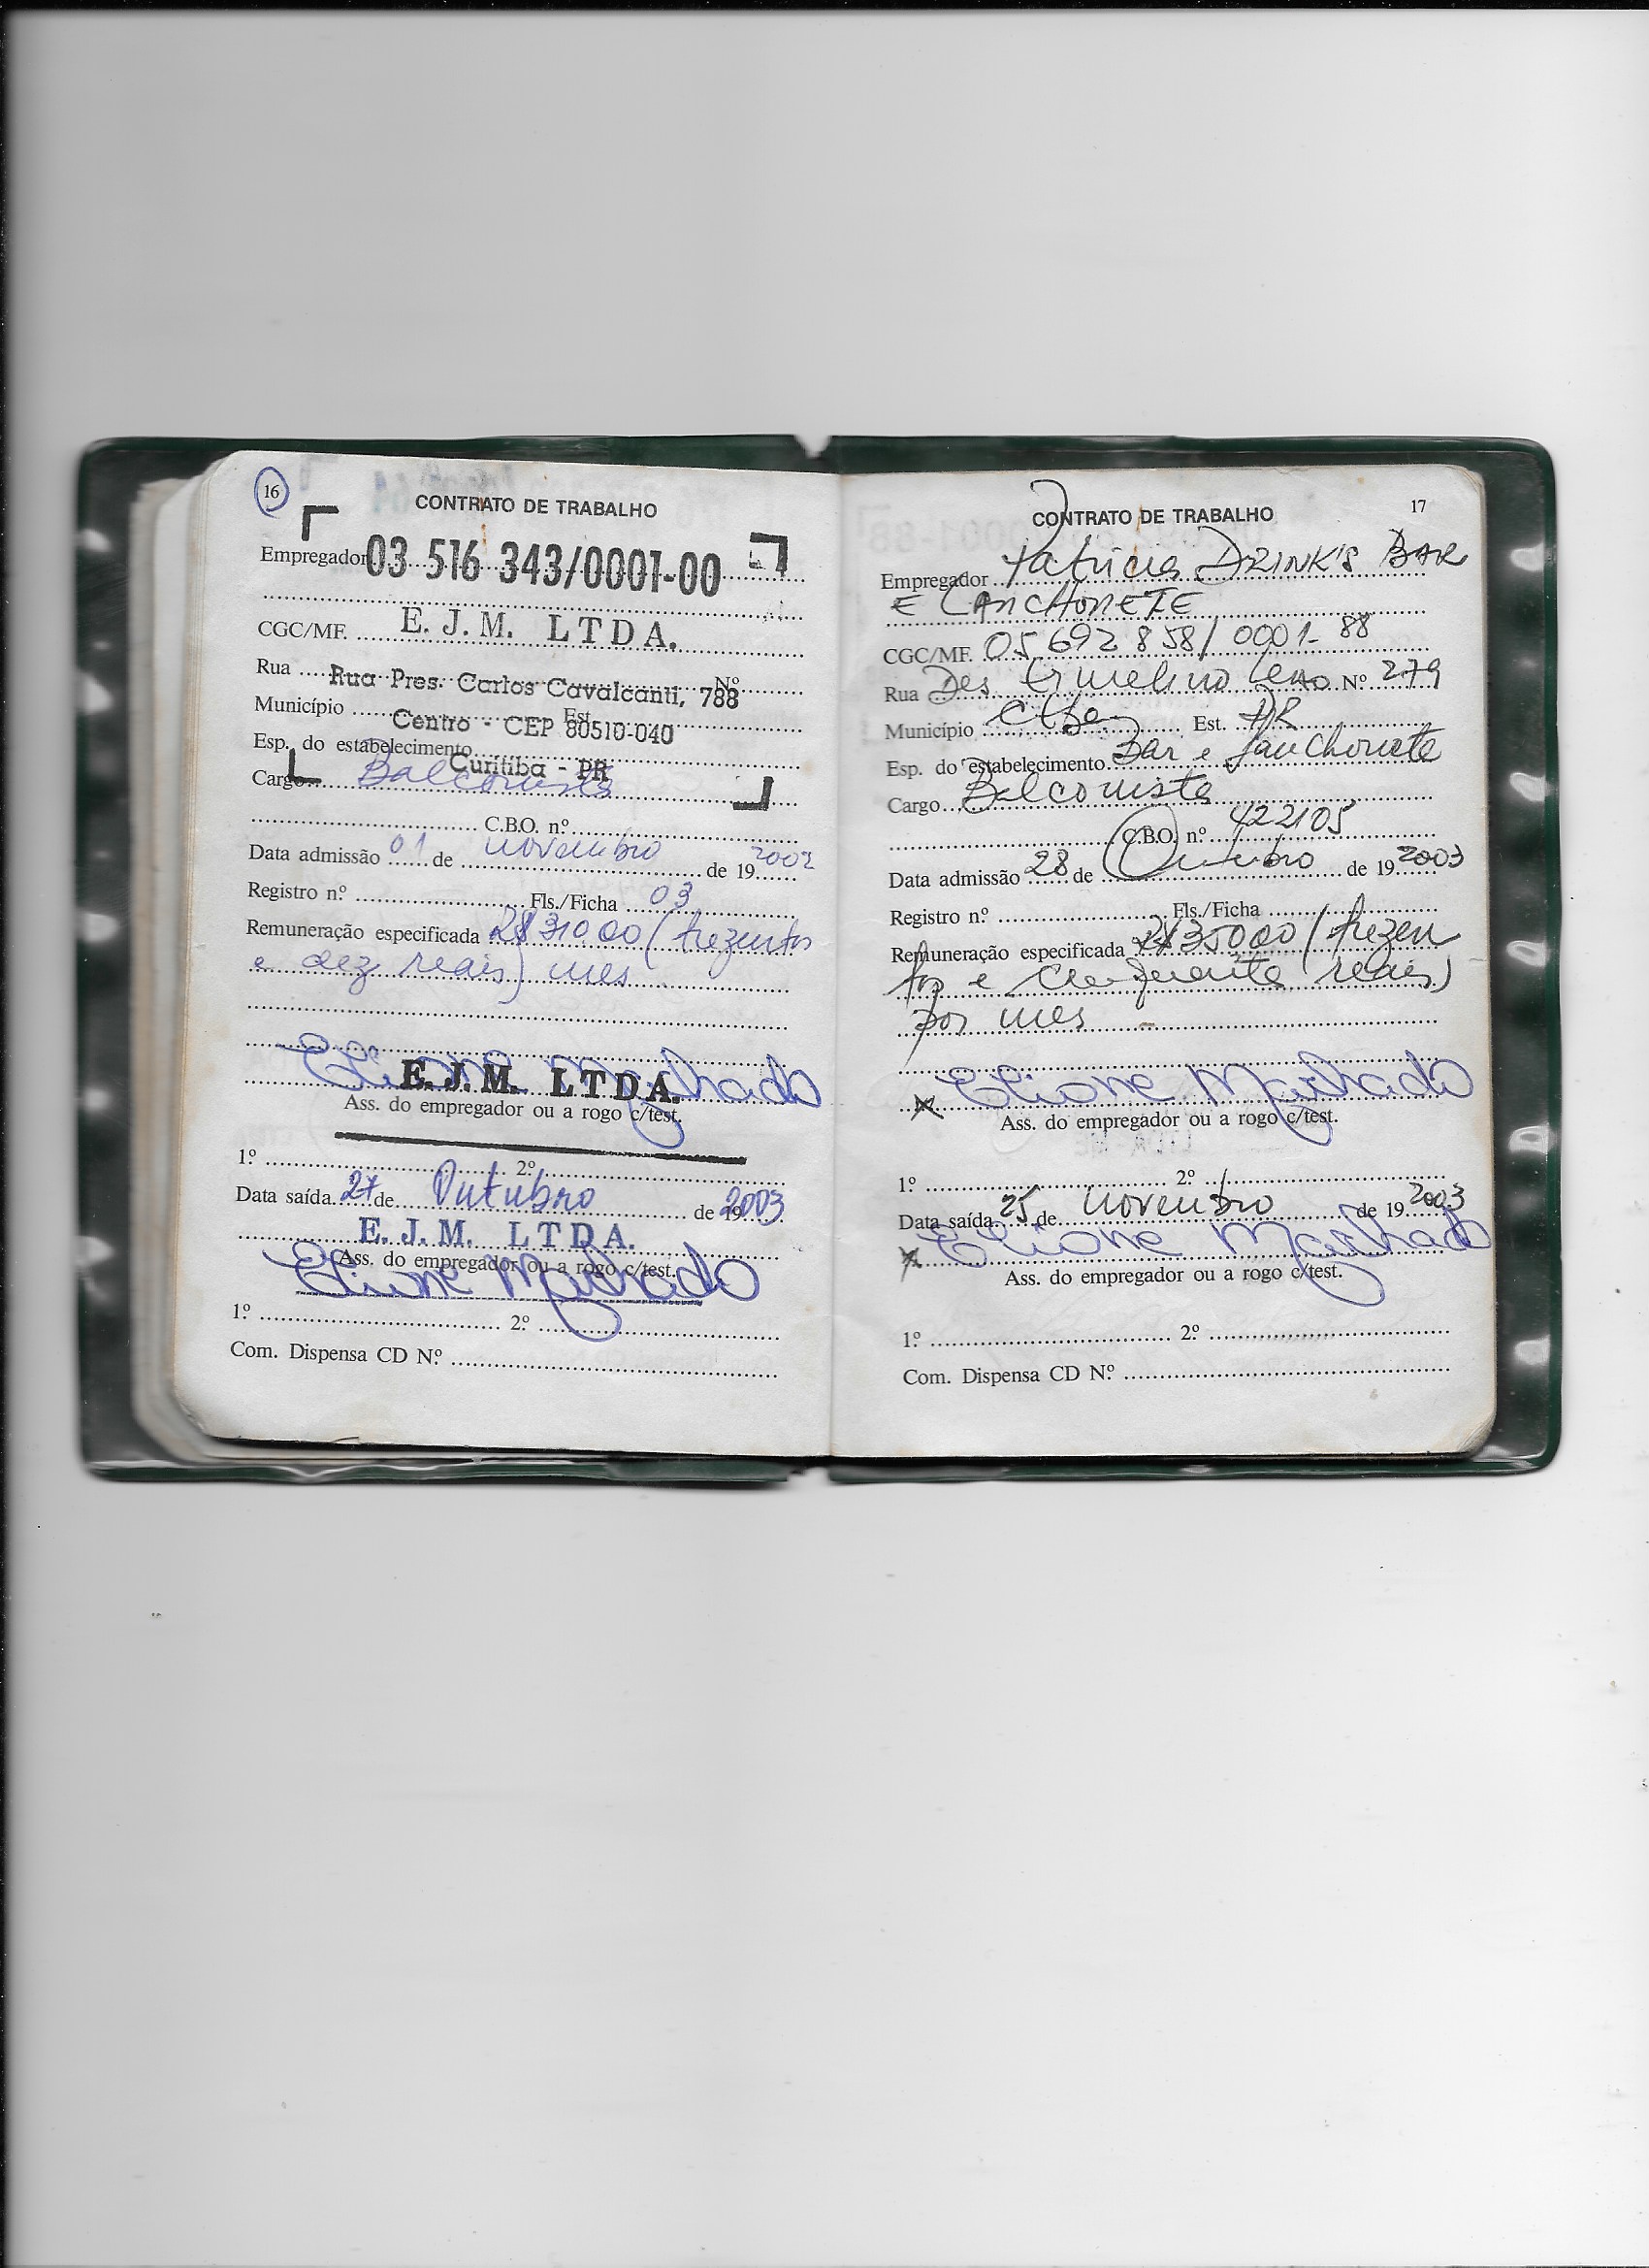 16
CONTRATO DE TRABALHO
Empregador 03 516 343/0001-00
CGC/MF. E. J. M. LTDA.
Rua Rua Pres. Carlos Cavalcanti, 788 Nº
Município Centro - CEP 80510-040 Est.
Esp. do estabelecimento Curitiba - PR
Cargo Balconista
C.B.O. nº
Data admissão 01 de novembro de 19 2002
Registro nº Fls./Ficha 03
Remuneração especificada R$ 310,00 (trezentos
e dez reais) mes
Elione Machado
E. J. M. LTDA.
Ass. do empregador ou a rogo c/test.
1º 2º
Data saída 27 de Outubro de 19 2003
E. J. M. LTDA.
Elione Machado
Ass. do empregador ou a rogo c/test.
1º 2º
Com. Dispensa CD Nº
17
CONTRATO DE TRABALHO
Empregador Patricia DRINK'S BAR
E LANCHONETE
CGC/MF. 05 692 858/0001-88
Rua Des Ermelino Leão Nº 279
Município Ctba Est. PR
Esp. do estabelecimento Bar e Lanchonete
Cargo Balconista
C.B.O. nº 422105
Data admissão 28 de Outubro de 19 2003
Registro nº Fls./Ficha
Remuneração especificada R$ 350,00 (trezen
tos e cinquenta reais)
por mes
Elione Machado
x
Ass. do empregador ou a rogo c/test.
1º 2º
Data saída 25 de novembro de 19 2003
x Elione Machado
Ass. do empregador ou a rogo c/test.
1º 2º
Com. Dispensa CD Nº